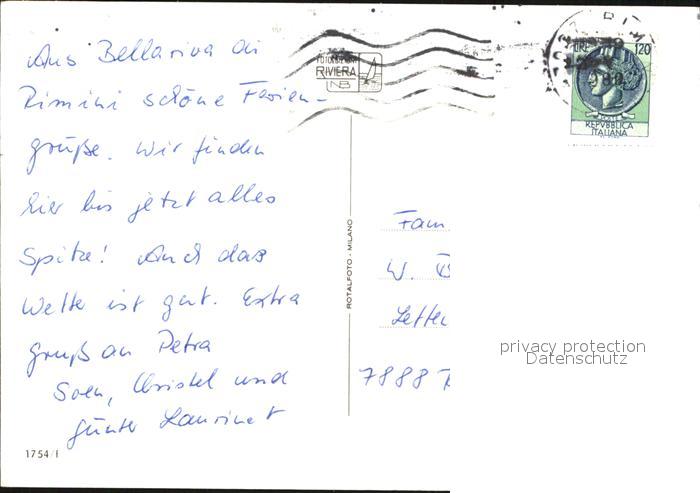 Aus Bellariva di
Rimini schöne Ferien-
grüße. Wir finden
hier bis jetzt alles
Spitze! Auch das
Wetter ist gut. Extra
gruß an Petra
Sven, Christel und
Günter
1754/f
ROTALFOTO - MILANO
RIVIERA
LIRE 120
REPVBBLICA
ITALIANA
Fam
W.
7888
privacy protection
Datenschutz